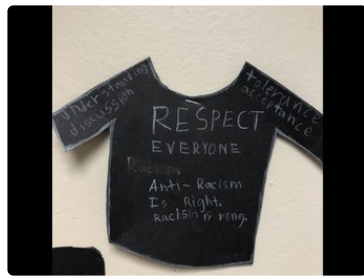 understanding
discussion
tolerance
acceptance
RESPECT
EVERYONE
Racism
Anti-Racism
Is Right.
Racism is rong.